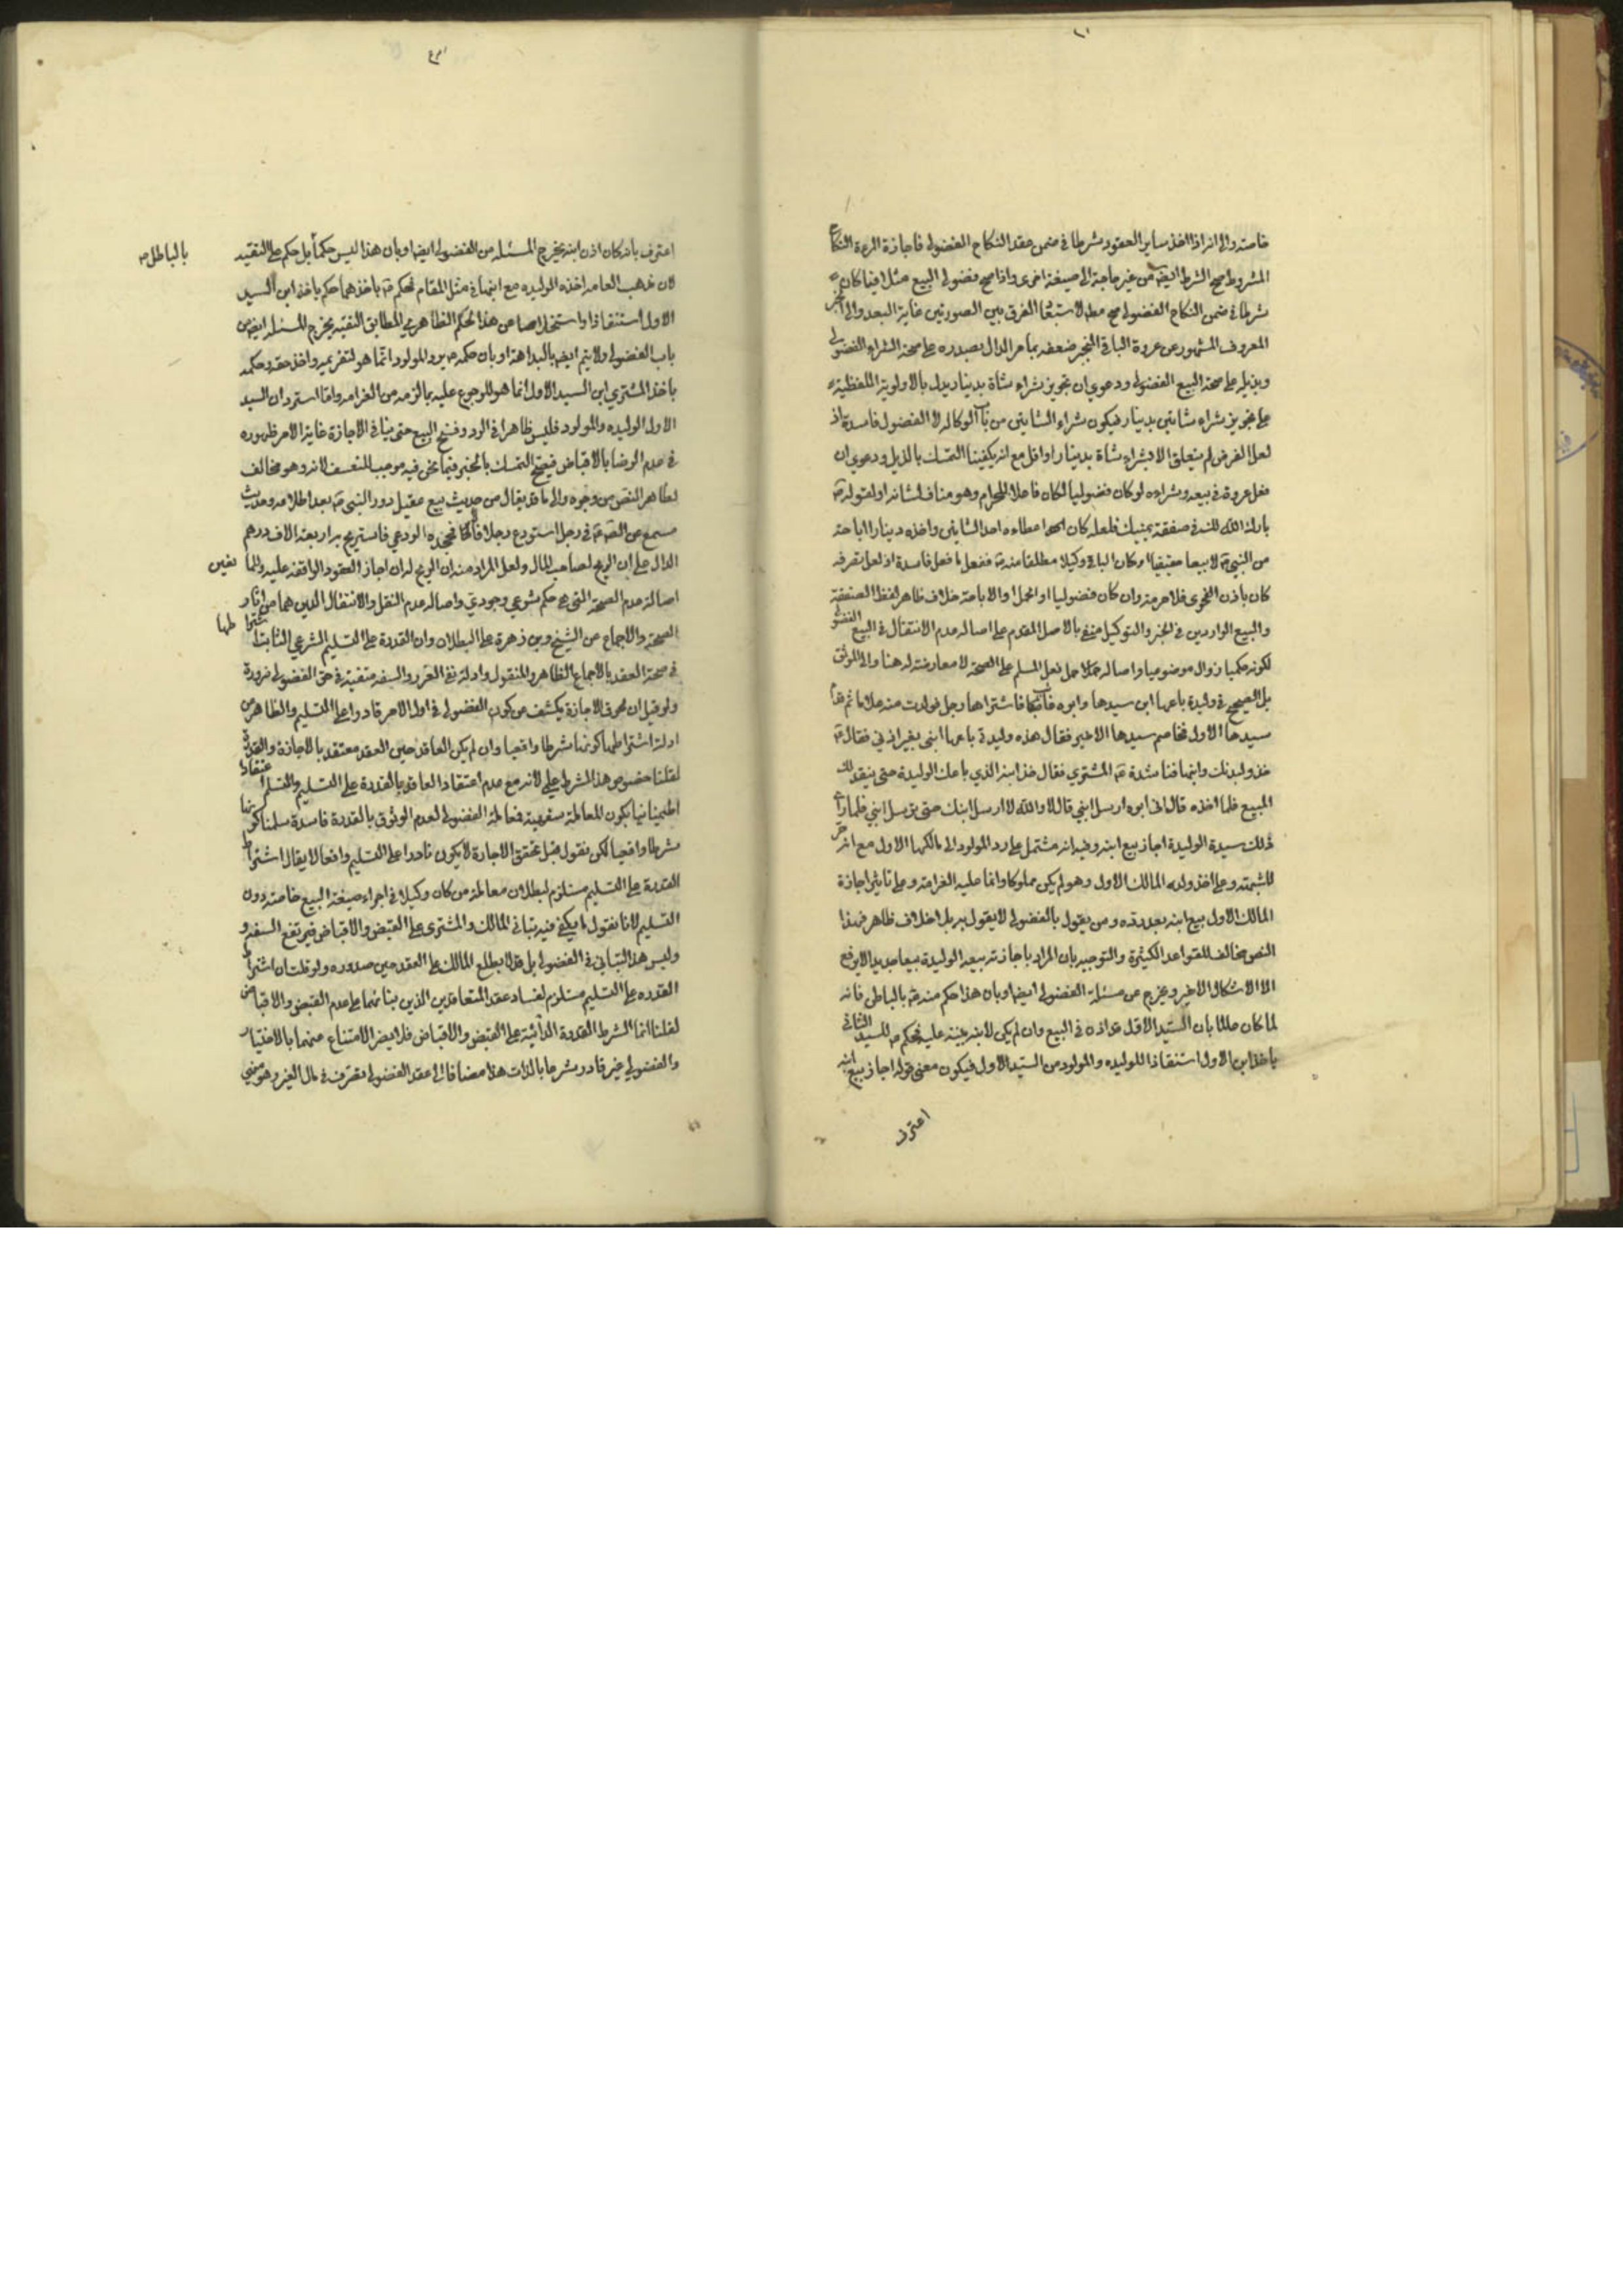 خاصة والى انه اذا اخذ ساير العقود شرطا في ضمن عقد النكاح الفضولي فاجازة المرءة النكاح
المشروط صح الشرط ايضا من غير حاجة الى صيغة اخرى واذا صح فضولي البيع مثلا فيما كان
شرطا في ضمن النكاح الفضولي صح مطلقا لاستبعاد الفرق بين الصورتين غاية البعد والى الخبر
المعروف المشهور عن عروة البارقي المنجبر ضعفه بما مر الدال بصدره على صحة الشراء الفضولي
وبذيله على صحة البيع الفضولي ودعوى ان تجويز شراء شاة بدينار يدل بالاولوية اللفظية
على تجويز شراء شاتين بدينار فيكون شراء الشاتين من باب الوكالة لا الفضول فاسدة اذ
لعل الغرض لم يتعلق الا بشراء شاة بدينار او اقل مع انه يكفينا التمسك بالذيل ودعوى ان
فعل عروة في بيعه وشراءه لو كان فضوليا لكان فاعلا للحرام وهو مناف لشانه او لقوله
بارك الله لك في صفقة يمينك فلعله كان اعطاءه احد الشاتين واخذه دينارا اباحة
من النبي لا بيعا حقيقيا او كان البارقي وكيلا مطلقا منه ففعل ما فعل فاسدة اذ لعل تصرفه
كان باذن الفحوى فلا حرمة وان كان فضوليا او الحمل والاباحة خلاف ظاهر لفظ الصفقة
والبيع الواردين في الخبر والتوكيل منفي بالاصل المقدم على اصالة عدم الانتقال في البيع الفضولي
لكونه حكميا وزوال موضوعيا واصالة حمل فعل المسلم على الصحة لا معارضة له هنا والى الموثق
بل الصحيح في وليدة باعها ابن سيدها وابوه غائب فاشتراها رجل فولدت منه غلاما ثم قدم
سيدها الاول فخاصم سيدها الاخير فقال هذه وليدة باعها ابنى بغير اذني فقال
خذ وليدتك وابنها فناشده المشتري فقال خذ ابنه الذي باعك الوليدة حتى ينقد لك
المبيع فلما اخذه قال له ابوه ارسل ابني قال لا والله لا ارسل ابنك حتى ترسل ابني فلما راى
ذلك سيد الوليدة اجاز بيع ابنه وفيه انه مشتمل على رد المولود الى مالكها الاول مع انه حر
للشبهة وعلى اخذ ولده المالك الاول وهو لم يكن مملوكا وانما عليه الغرامة وعلى تاثير اجازة
المالك الاول بيع ابنه بعد رده ومن يقول بالفضولي لا يقول به بل خلاف ظاهر فهذا
النص مخالف للقواعد الكثيرة والتوجيه بان المراد باجازته بيعه الوليدة بيعا جديدا لا يرفع
الا الاشكال الاخير ويخرج عن مسئلة الفضولي ايضا وبان هذا حكم منه بالباطن فانه
لما كان عالما بان السيد الاول اذنه في البيع وان لم يكن لابنه بينة عليه فحكم للسيد الثاني
باخذ ابن الاول استنقاذا للوليده والمولود من السيد الاول فيكون معنى قوله اجاز بيع ابنه
اعترف
اعترف بانه كان اذن ابنه يخرج المسئلة من الفضولي ايضا وبان هذا ليس حكما بل حكم على التقية
بالباطل
لان مذهب العامة اخذه الوليده مع ابنها في مثل المقام فحكم باخذهما حكم باخذ ابن السيد
الاول استنقاذا واستخلاصا من هذا الحكم الظاهري المطابق التقية يخرج المسئلة ايضا من
باب الفضولي ولا يتم ايضا بالبداهة او بان حكمه برد المولود انما هو لتغريمه واخذ حقه وحكمه
باخذ المشتري ابن السيد الاول انما هو للرجوع عليه بما لزمه من الغرامة واما استرداد السيد
الاول الوليده والمولود فليس ظاهرا في الرد وفسخ البيع حتى ينافي الاجازة غاية الامر ظهوره
في عدم الرضا بالاقباض فيصح التمسك بالخبر فيما نحن فيه موجب للتعسف لانه وهو مخالف
لظاهر النص من وجوه والى ما قد يقال من حديث بيع عقيل دور النبي بعد اطلاعه وحديث
مسمع عن الصادق في رجل استودع رجلا مالا فجحده الودعي فاستربح به اربعة الاف درهم
الدال على ان الربح لصاحب المال ولعل المراد منه ان الربح له ان اجاز العقود الواقعة عليه والمانعين
اصالة عدم الصحة التي هي حكم شرعي وجودي واصالة عدم النقل والانتقال الذين هما من اثار
الصحة والاجماع عن الشيخ وبن زهرة على البطلان وان القدرة على التسليم الشرعي الثابت اشتراطها
في صحة العقد بالاجماع الظاهر والمنقول وادلة نفي الغرر والسفه منتفية في حق الفضولي ضرورة
ولو قيل ان لحوق الاجازة يكشف عن كون الفضولي في اول الامر قادرا على التسليم والظاهر من
ادلة اشتراطها كونها شرطا واقعيا وان لم يكن العاقد حين العقد معتقد بالاجازة والقدرة
لقلنا خصوص هذا الشرط علمي لانه مع عدم اعتقاد العاقد بالقدرة على التسليم والتسلم اعتقادا
اطمينانيا يكون المعاملة سفهية فمعاملة الفضولي لعدم الوثوق بالقدرة فاسدة سلمنا كونها
شرطا واقعيا لكن نقول قبل تحقق الاجازة لا يكون قادرا على التسليم واقعا لا يقال اشتراط
القدرة على التسليم مستلزم لبطلان معاملة من كان وكيلا في اجراء صيغة البيع خاصة دون
التسليم لانا نقول ما يكفي فيه تباني المالك والمشتري على القبض والاقباض فيرتفع السفه و
وليس هذا التباني في الفضولي بل قد لا يطلع المالك على العقد حين صدوره ولو قلت ان اشتراط
القدره على التسليم مستلزم لفساد عقد المتعاقدين الذين بنائهما على عدم القبض والاقباض
لقلنا انما الشرط القدرة الذاتية على القبض والاقباض فلا يضر الامتناع منهما بالاختيار
والفضولي غير قادر شرعا بالذات هذا مضافا الى عقد الفضولي تصرف في مال الغير وهو منهي